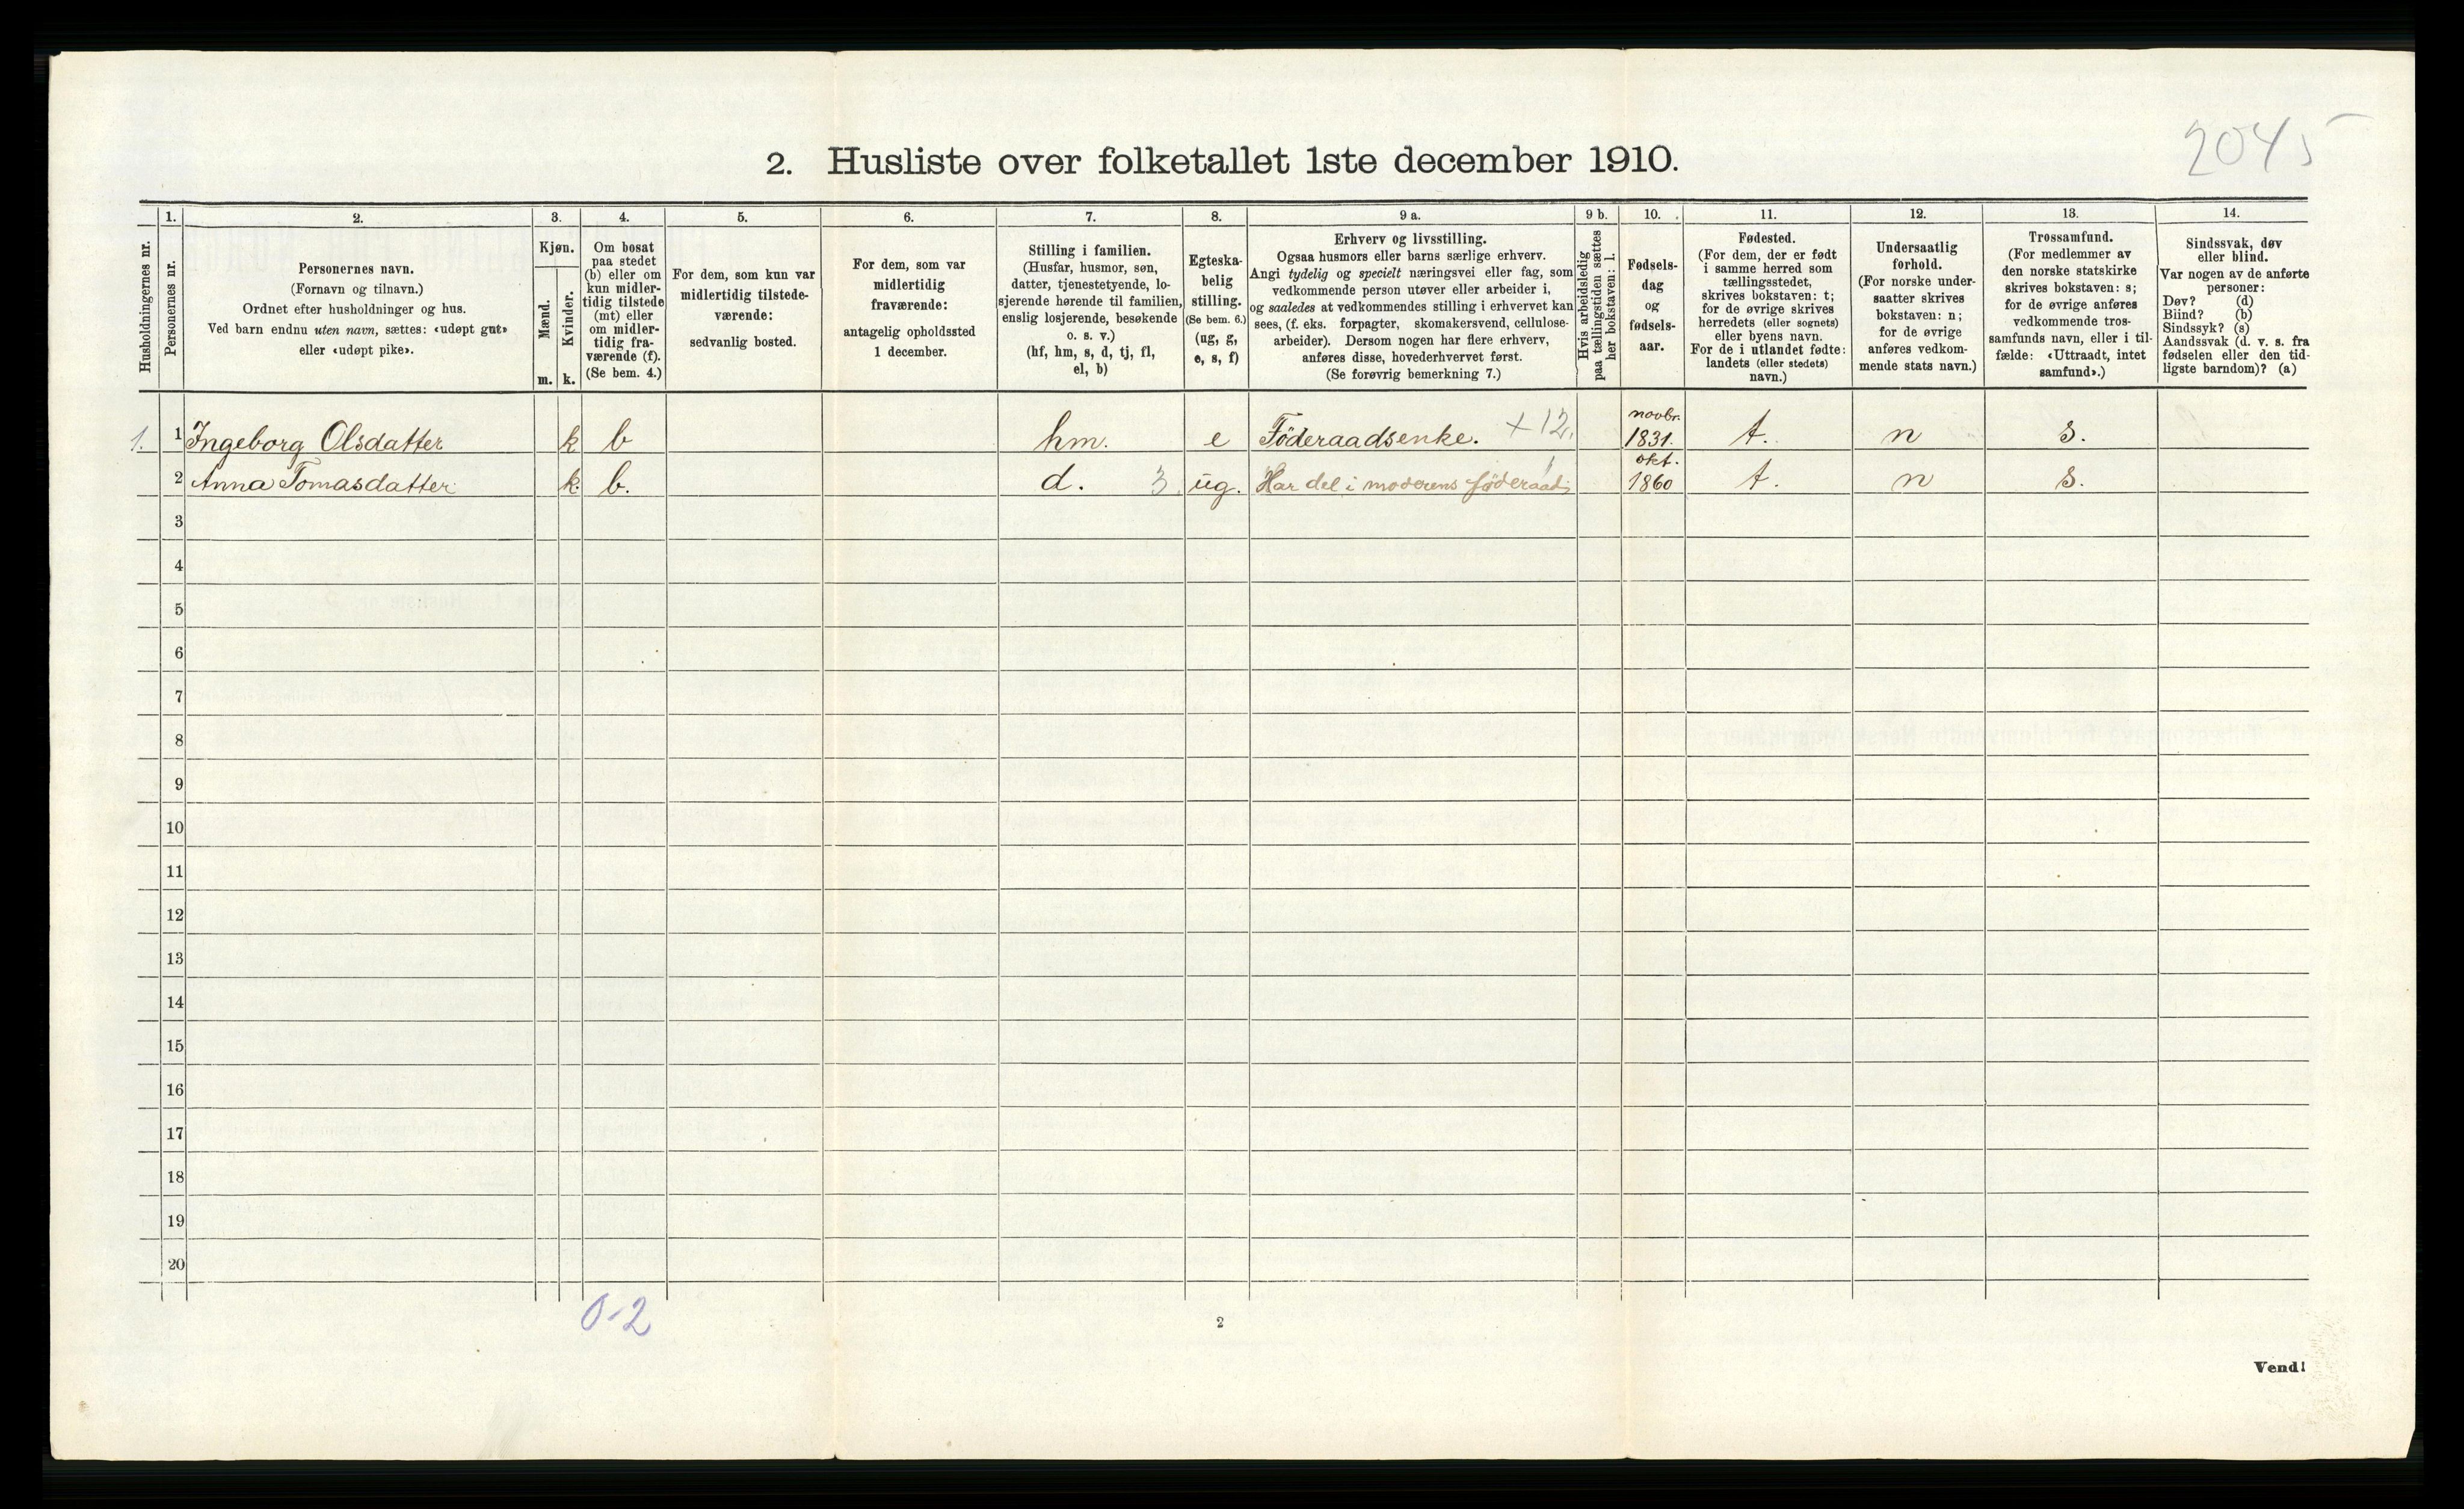 2045
2. Husliste over folketallet 1ste december 1910.
Husholdningernes nr.
1.
Personernes nr.
2.
Personernes navn.
(Fornavn og tilnavn.)
Ordnet efter husholdninger og hus.
Ved barn endnu uten navn, sættes: «udøpt gut»
eller «udøpt pike».
3.
Kjøn.
Mænd.
m.
Kvinder.
k.
4.
Om bosat
paa stedet
(b) eller om
kun midler-
tidig tilstede
(mt) eller
om midler-
tidig fra-
værende (f).
(Se bem. 4.)
5.
For dem, som kun var
midlertidig tilstede-
værende:
sedvanlig bosted.
6.
For dem, som var
midlertidig
fraværende:
antagelig opholdssted
1 december.
7.
Stilling i familien.
(Husfar, husmor, søn,
datter, tjenestetyende, lo-
sjerende hørende til familien,
enslig losjerende, besøkende
o. s. v.)
(hf, hm, s, d, tj, fl,
el, b)
8.
Egteska-
belig
stilling.
(Se bem. 6.)
(ug, g,
e, s, f)
9 a.
Erhverv og livsstilling.
Ogsaa husmors eller barns særlige erhverv.
Angi tydelig og specielt næringsvei eller fag, som
vedkommende person utøver eller arbeider i,
og saaledes at vedkommendes stilling i erhvervet kan
sees, (f. eks. forpagter, skomakersvend, cellulose-
arbeider). Dersom nogen har flere erhverv,
anføres disse, hovederhvervet først.
(Se forøvrig bemerkning 7.)
9 b.
Hvis arbeidsledig
paa tællingstiden sættes
her bokstaven: l.
10.
Fødsels-
dag
og
fødsels-
aar.
11.
Fødested.
(For dem, der er født
i samme herred som
tællingsstedet,
skrives bokstaven: t;
for de øvrige skrives
herredets (eller sognets)
eller byens navn.
For de i utlandet fødte:
landets (eller stedets)
navn.)
12.
Undersaatlig
forhold.
(For norske under-
saatter skrives
bokstaven: n;
for de øvrige
anføres vedkom-
mende stats navn.)
13.
Trossamfund.
(For medlemmer av
den norske statskirke
skrives bokstaven: s;
for de øvrige anføres
vedkommende tros-
samfunds navn, eller i til-
fælde: «Uttraadt, intet
samfund».)
14.
Sindssvak, døv
eller blind.
Var nogen av de anførte
personer:
Døv? (d)
Blind? (b)
Sindssyk? (s)
Aandssvak (d. v. s. fra
fødselen eller den tid-
ligste barndom)? (a)
1. 1 Ingeborg Olsdatter k b hm. e Föderaadsenke. +12. novbr. 1831. t. n s.
2 Anna Tomasdatter k. b. d. 3. ug. Har del i moderens föderaad; okt. 1860 t. n s.
3
4
5
6
7
8
9
10
11
12
13
14
15
16
17
18
19
20
0-2
2
Vend!